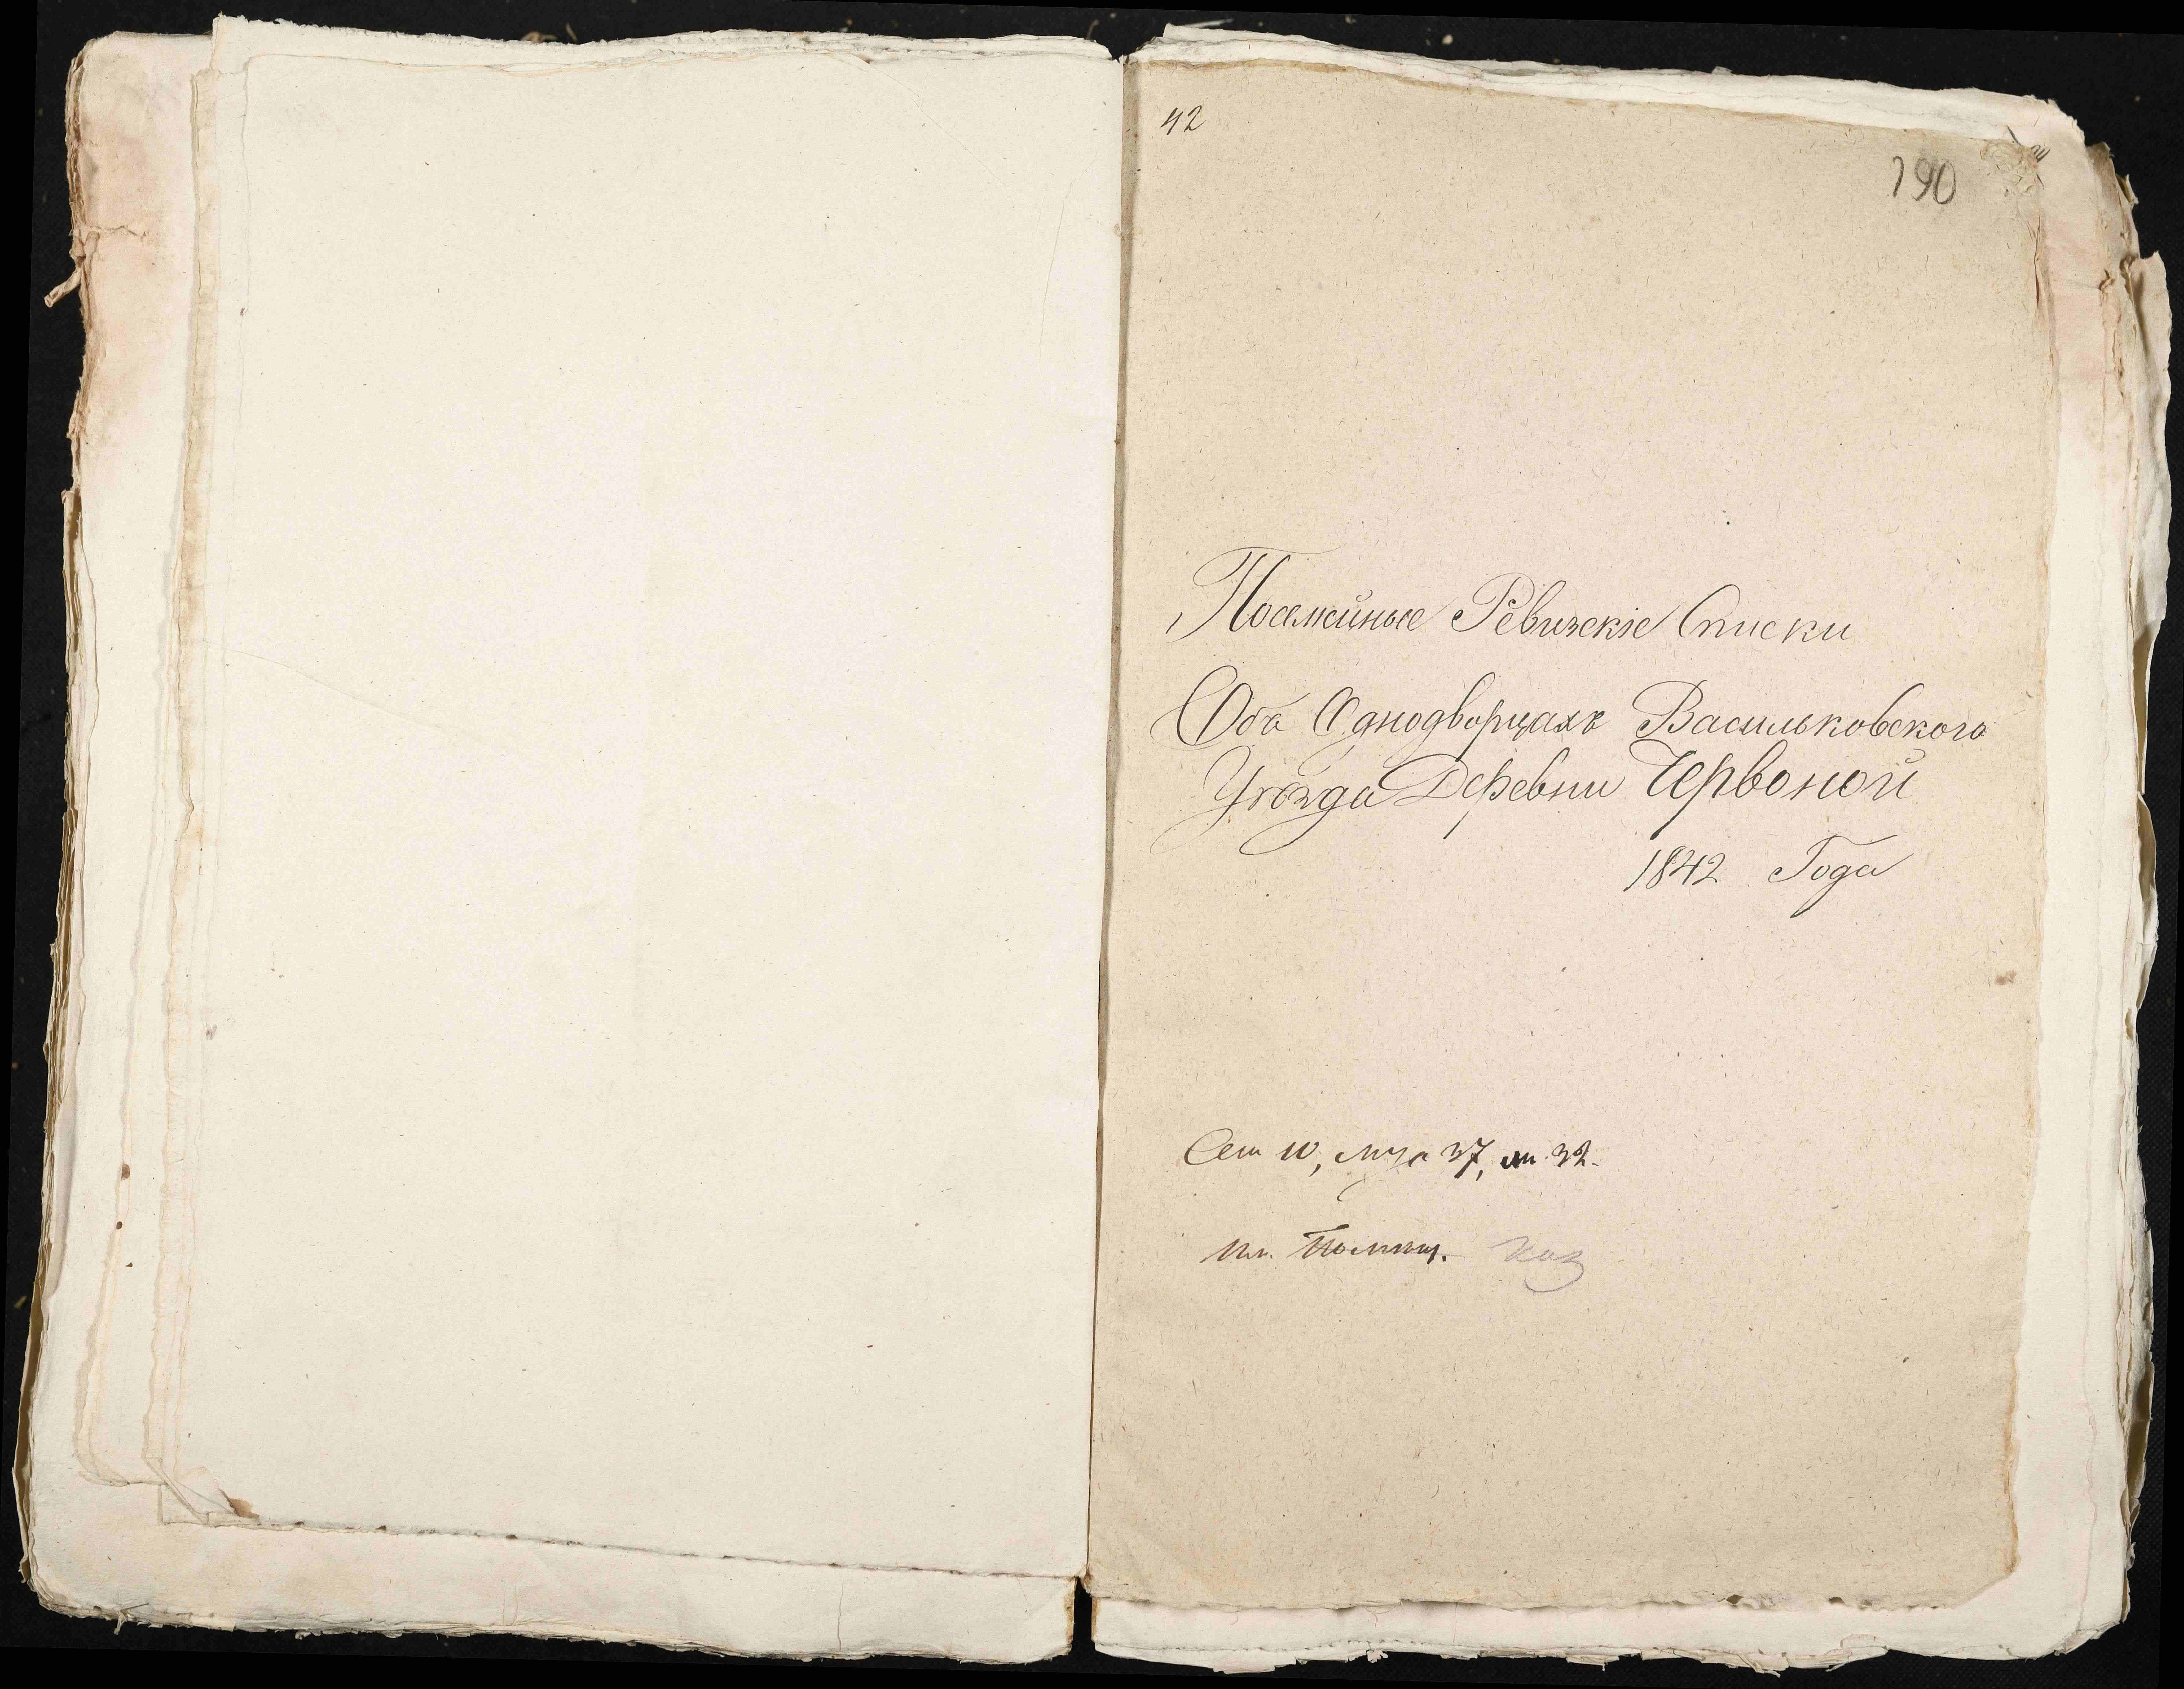 42
190
Посемейные Ревизскіе Списки
Объ Однодворцахъ Васильковского
Уѣзда Деревни Червоной
1842 Года
Сем 10, муж 37, ж. 32.
Каз